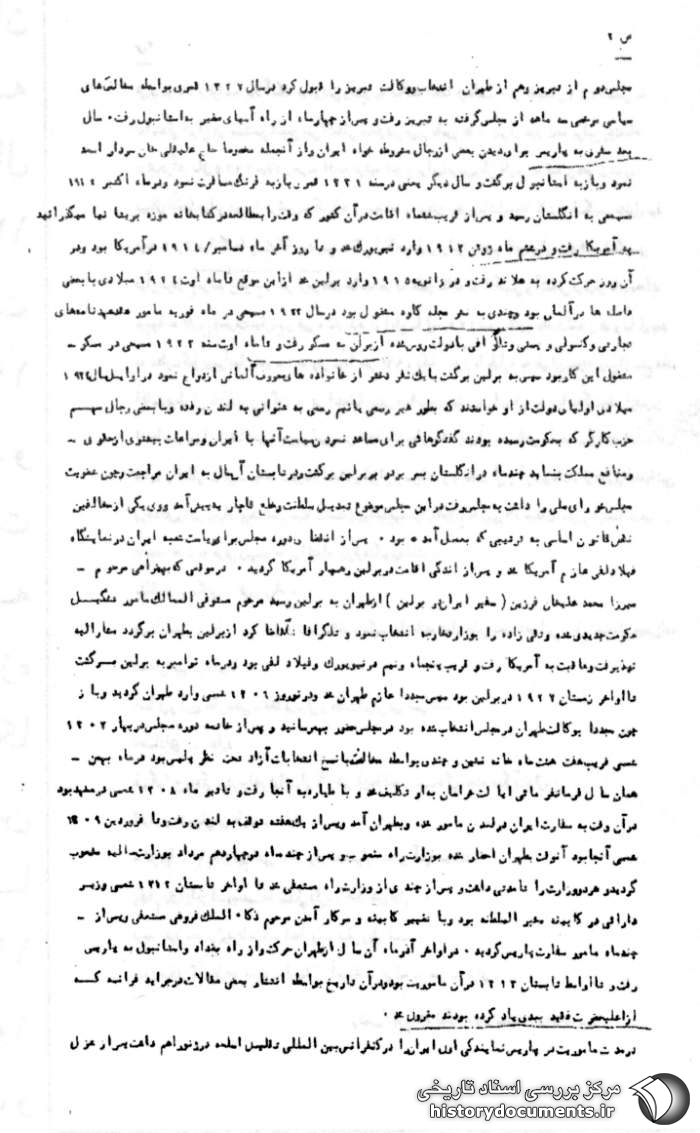 ص ۲
مجلس دوم از تبریز و هم از طهران انتخاب و وکالت تبریز را قبول کرد در سال ۱۳۲۷ قمری بواسطه مخالفت‌های
سیاسی مرخصی سه ماهه از مجلس گرفته به تبریز رفت و پس از چهار ماه از راه آسیای صغیر به استانبول رفت ۰ سال
بعد سفری به پاریس برای دیدن بعضی از رجال مشروطه خواه ایران و از آنجمله مخصوصا حاج علیقلی خان سردار اسعد
نمود و باز به استانبول برگشت و سال دیگر یعنی در سنه ۱۳۳۱ قمری باز به فرنگ مسافرت نمود و در ماه اکتبر
مسیحی به انگلستان رسید و پس از قریب هشت ماه اقامت در آن کشور که وقت را بمطالعه در کتابخانه موزه بریتانیا میگذرانید
به آمریکا رفت و در هشتم ماه ژوئن ۱۹۱۳ وارد نیویورک شد و تا روز آخر ماه دسامبر ۱۹۱۴ در آمریکا بود و در
آن روز حرکت کرده به هلاند رفت و در ژانویه ۱۹۱۵ وارد برلین شد از این موقع تا ماه اوت ۱۹۲۴ میلادی با بعضی
فاصله ها در آلمان بود و چندی به نشر مجله کاوه مشغول بود در سال ۱۹۲۲ مسیحی در ماه فوریه مامور عقد عهدنامه‌های
تجارتی و کنسولی و پستی و تلگرافی با دولت روس شده از برلن به مسکو رفت و تا ماه اوت سنه ۱۹۲۳ مسیحی در مسکو -
مشغول این کار بود سپس به برلین برگشت با یک نفر دختر از خانواده های معروف آلمانی ازدواج نمود در اوایل سال ۱۹۲۴
میلادی اولیای دولت از او خواستند که بطور غیر رسمی یا نیم رسمی به عنوانی به لندن رفته و با بعضی رجال مهم
حزب کارگر که بحکومت رسیده بودند گفتگوهائی برای مساعد نمودن سیاست آنها با ایران و مراعات بیشتری از حقوق -
و منافع مملکت بنماید چند ماه در انگلستان بسر برد و به برلین برگشت و در تابستان آن سال به ایران مراجعت و چون عضویت
مجلس شورای ملی را داشت به مجلس رفت در این مجلس موضوع تبدیل سلطنت و خلع قاجاریه پیش آمد و وی یکی از مخالفین
نقض قانون اساسی به ترتیبی که بعمل آمده بود ۰ پس از انقضای دوره مجلس برای ریاست شعبه ایران در نمایشگاه
فیلادلفی عازم آمریکا شد و پس از اندکی اقامت در برلین رهسپار آمریکا گردید ۰ در موقعی که بهمراهی مرحوم -
میرزا محمد علیخان فرزین (سفیر ایران در برلین) از طهران به برلین رسید مرحوم مستوفی الممالک مامور تشکیل
حکومت جدیدی شده و تقی زاده را بوزارت خارجه انتخاب نمود و تلگرافا تقاضا کرد از برلین بطهران برگردد مشارالیه
نپذیرفت و عاقبت به آمریکا رفت و قریب پنجماه و نیم در نیویورک و فیلادلفی بود و در ماه نوامبر به برلین برگشت
تا اواخر زمستان ۱۹۲۷ در برلین بود سپس مجددا عازم طهران شد و در نوروز ۱۳۰۶ شمسی وارد طهران گردید و باز
چون مجددا بوکالت طهران در مجلس انتخاب شده بود در مجلس حضور بهمرسانید و پس از خاتمه دوره مجلس در بهار
شمسی قریب هفت هشت ماه خانه نشین و چندی بواسطه مخالفت با نسخ انتخابات آزاد تحت نظر پلیس بود در ماه بهمن -
همان سال فرمانفرمائی ایالت خراسان به او تکلیف شد و با طیاره به آنجا رفت و تا تیر ماه ۱۳۰۸ شمسی در مشهد بود
در آن وقت به سفارت ایران در لندن مامور شده و بطهران آمد و پس از یک هفته توقف به لندن رفت و تا فروردین ۱۳۰۹
شمسی آنجا بود آنوقت بطهران احضار شده بوزارت راه منصوب و پس از چند ماه در چهاردهم مرداد بوزارت مالیه منصوب
گردید و هر دو وزارت را تا مدتی داشت و پس از چندی از وزارت راه مستعفی شد تا اواخر تابستان ۱۳۱۲ شمسی وزیر
دارائی در کابینه مخبر السلطنه بود و با تغییر کابینه و سر کار آمدن مرحوم ذکاء الملک فروغی مستعفی و پس از -
چند ماه مامور سفارت پاریس گردید ۰ در اواخر آذر ماه آن سال از طهران حرکت و از راه بغداد و استانبول به پاریس
رفت و تا اواسط تابستان ۱۳۱۳ در آن ماموریت بود و در آن تاریخ بواسطه انتشار بعضی مقالات در جراید فرانسه که
از اعلیحضرت فقید ببدی یاد کرده بودند معزول شد ۰
در مدت ماموریت در پاریس نمایندگی اول ایران را در کنفرانس بین المللی تقلیل اسلحه در ژنو را هم داشت پس از عزل
مرکز بررسی اسناد تاریخی
historydocuments.ir